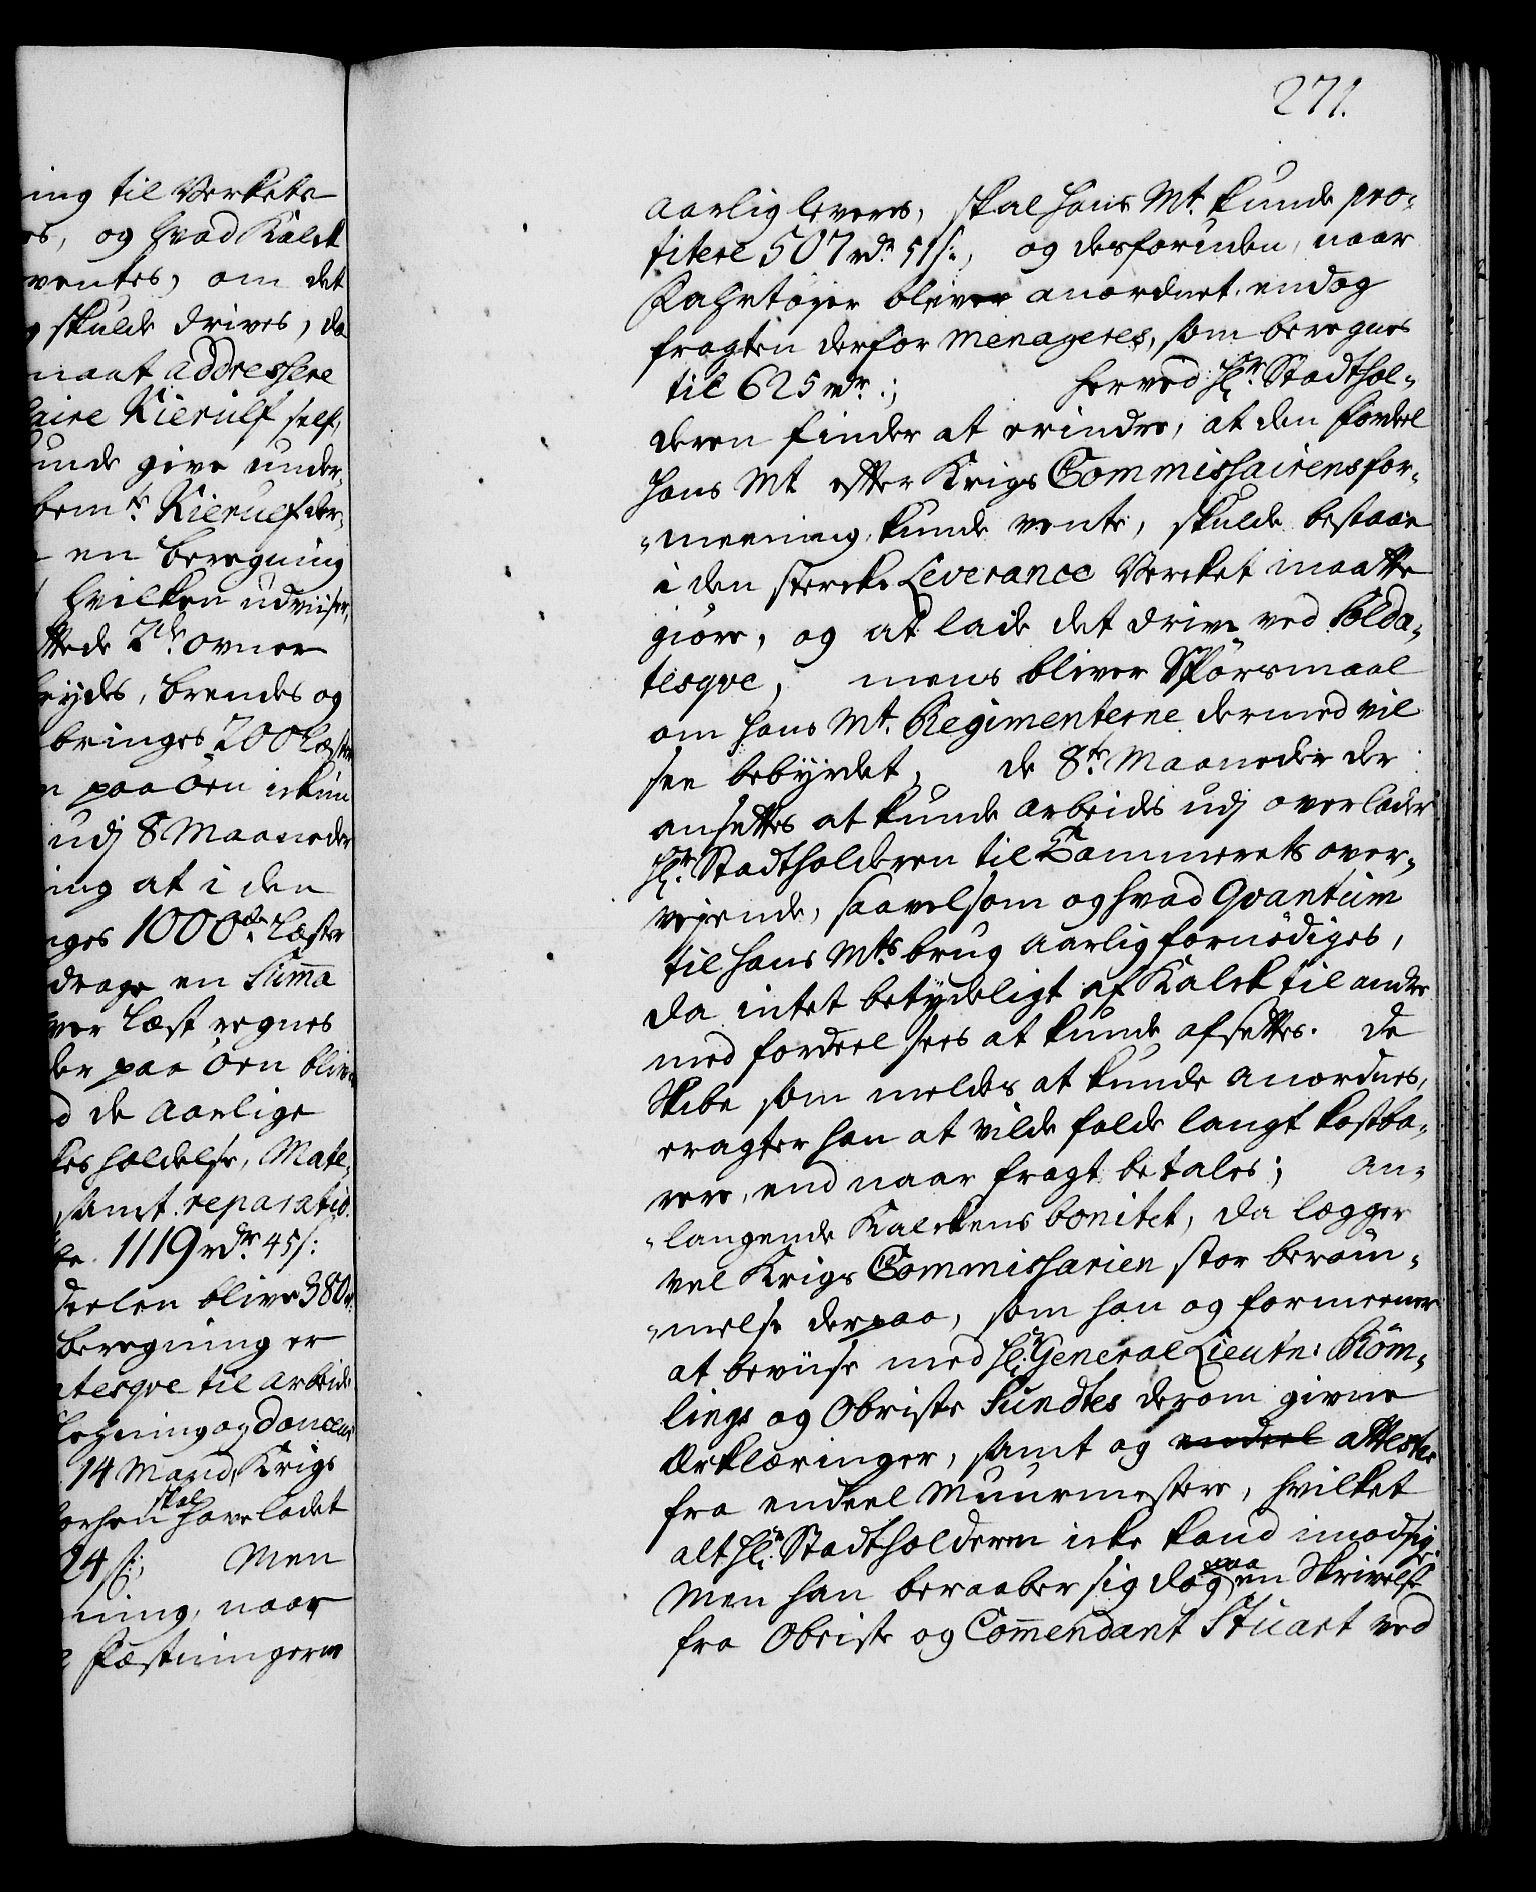 ing til Verkets
es, og hvad Kalck
ventes, om det
g skulde drives, da
maat addressere
saire Kierulf self,
unde give under¬
bemte Kierulf der¬
en beregning
hvilken udviiser,
ttede 2de ovner
brydes, brendes og
bringes 200 Læster
n paa Öen ickun
udj 8 Maaneder
ing at i den
nges 1000de Læster
drage en Summa
ver Læst regnes
der paa Öen blive
d de aarlige
kesholdelse, Mate¬
samt reparatio
1119 rdr 45 s:
deelen bliver 380
beregning er
tesqve til arbeide
og Douceur
14 Mand, Krigs
skal
have ladet
24 s:; Men
ning, naar
Fæstningerne
271.
aarlig leveres, skal Hans Mt. kunde pro¬
fitere 507 rdr 51 s:, og desforuden, naar
Fahrtöjer bliver anordnet, endog
fragten derfor menageres, som beregnes
til 625 rdr:; Herved Hr. Stadthol¬
deren finder at erindre, at den fordeel
Hans Mt efter Krigs Commissairens for¬
meening kunde vente, skulde bestaae
i den stercke Leverance Vercket maatte
giöre, og at lade det drive ved Solda¬
tesqve, mens bliver Spörsmaal
om Hans Mt. Regimenterne dermed vil
see bebyrdet, de 8te Maaneder der
ansettes at kunde arbeides udj overlader
Hr. Stadtholderen til Cammerets over¬
vejende, saavelsom og hvad Qvantum
til Hans Mts brug aarlig fornödiges,
da intet betydeligt af Kalck til andre
med fordeel sees at kunde afsettes. De
Skibe som meldes at kunde anordnes,
eragter han at vilde falde langt kostba¬
rere, end naar fragt betales; an¬
langende Kalckens bonitet, da legger
vel Krigs Commissarien stor beröm¬
melse derpaa, som han og formeener
at beviise med Hr. General Lieutn: Röm¬
lings og Obriste Sundtes derom givne
Erklæringer, samt og endeel attester
fra endeel Muurmestere, hvilket
alt Hr. Stadtholderen icke kand imodsige.
Men han beraaber sig dog paa en Skrivelse
fra Obriste og Commendant Stuart ved